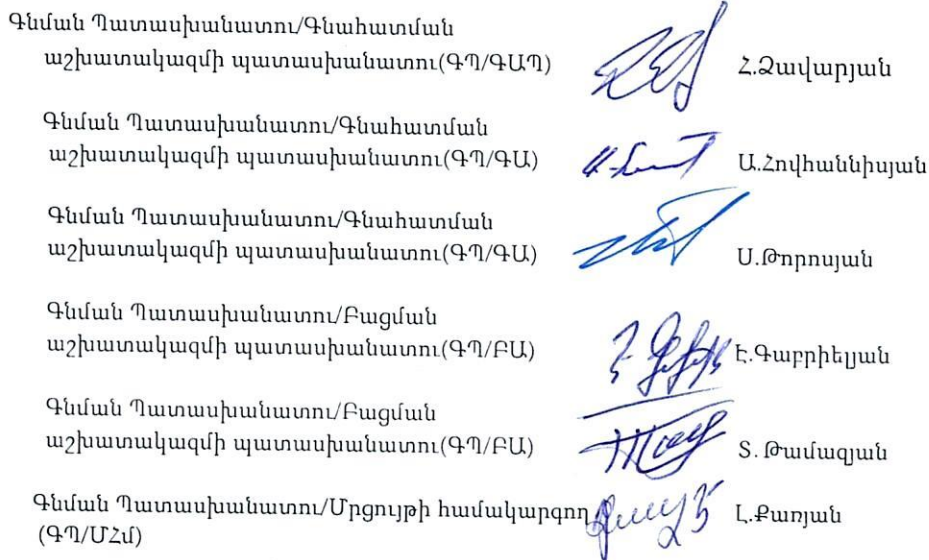 Գնման Պատասխանատու/Գնահատման
աշխատակազմի պատասխանատու(ԳՊ/ԳԱՊ) Հ.Զավարյան
Գնման Պատասխանատու/Գնահատման
աշխատակազմի պատասխանատու(ԳՊ/ԳԱ) Ա.Հովհաննիսյան
Գնման Պատասխանատու/Գնահատման
աշխատակազմի պատասխանատու(ԳՊ/ԳԱ) Ս.Թորոսյան
Գնման Պատասխանատու/Բացման
աշխատակազմի պատասխանատու(ԳՊ/ԲԱ) Է.Գաբրիելյան
Գնման Պատասխանատու/Բացման
աշխատակազմի պատասխանատու(ԳՊ/ԲԱ) Տ. Թամազյան
Գնման Պատասխանատու/Մրցույթի համակարգող Լ.Քառյան
(ԳՊ/ՄՀմ)